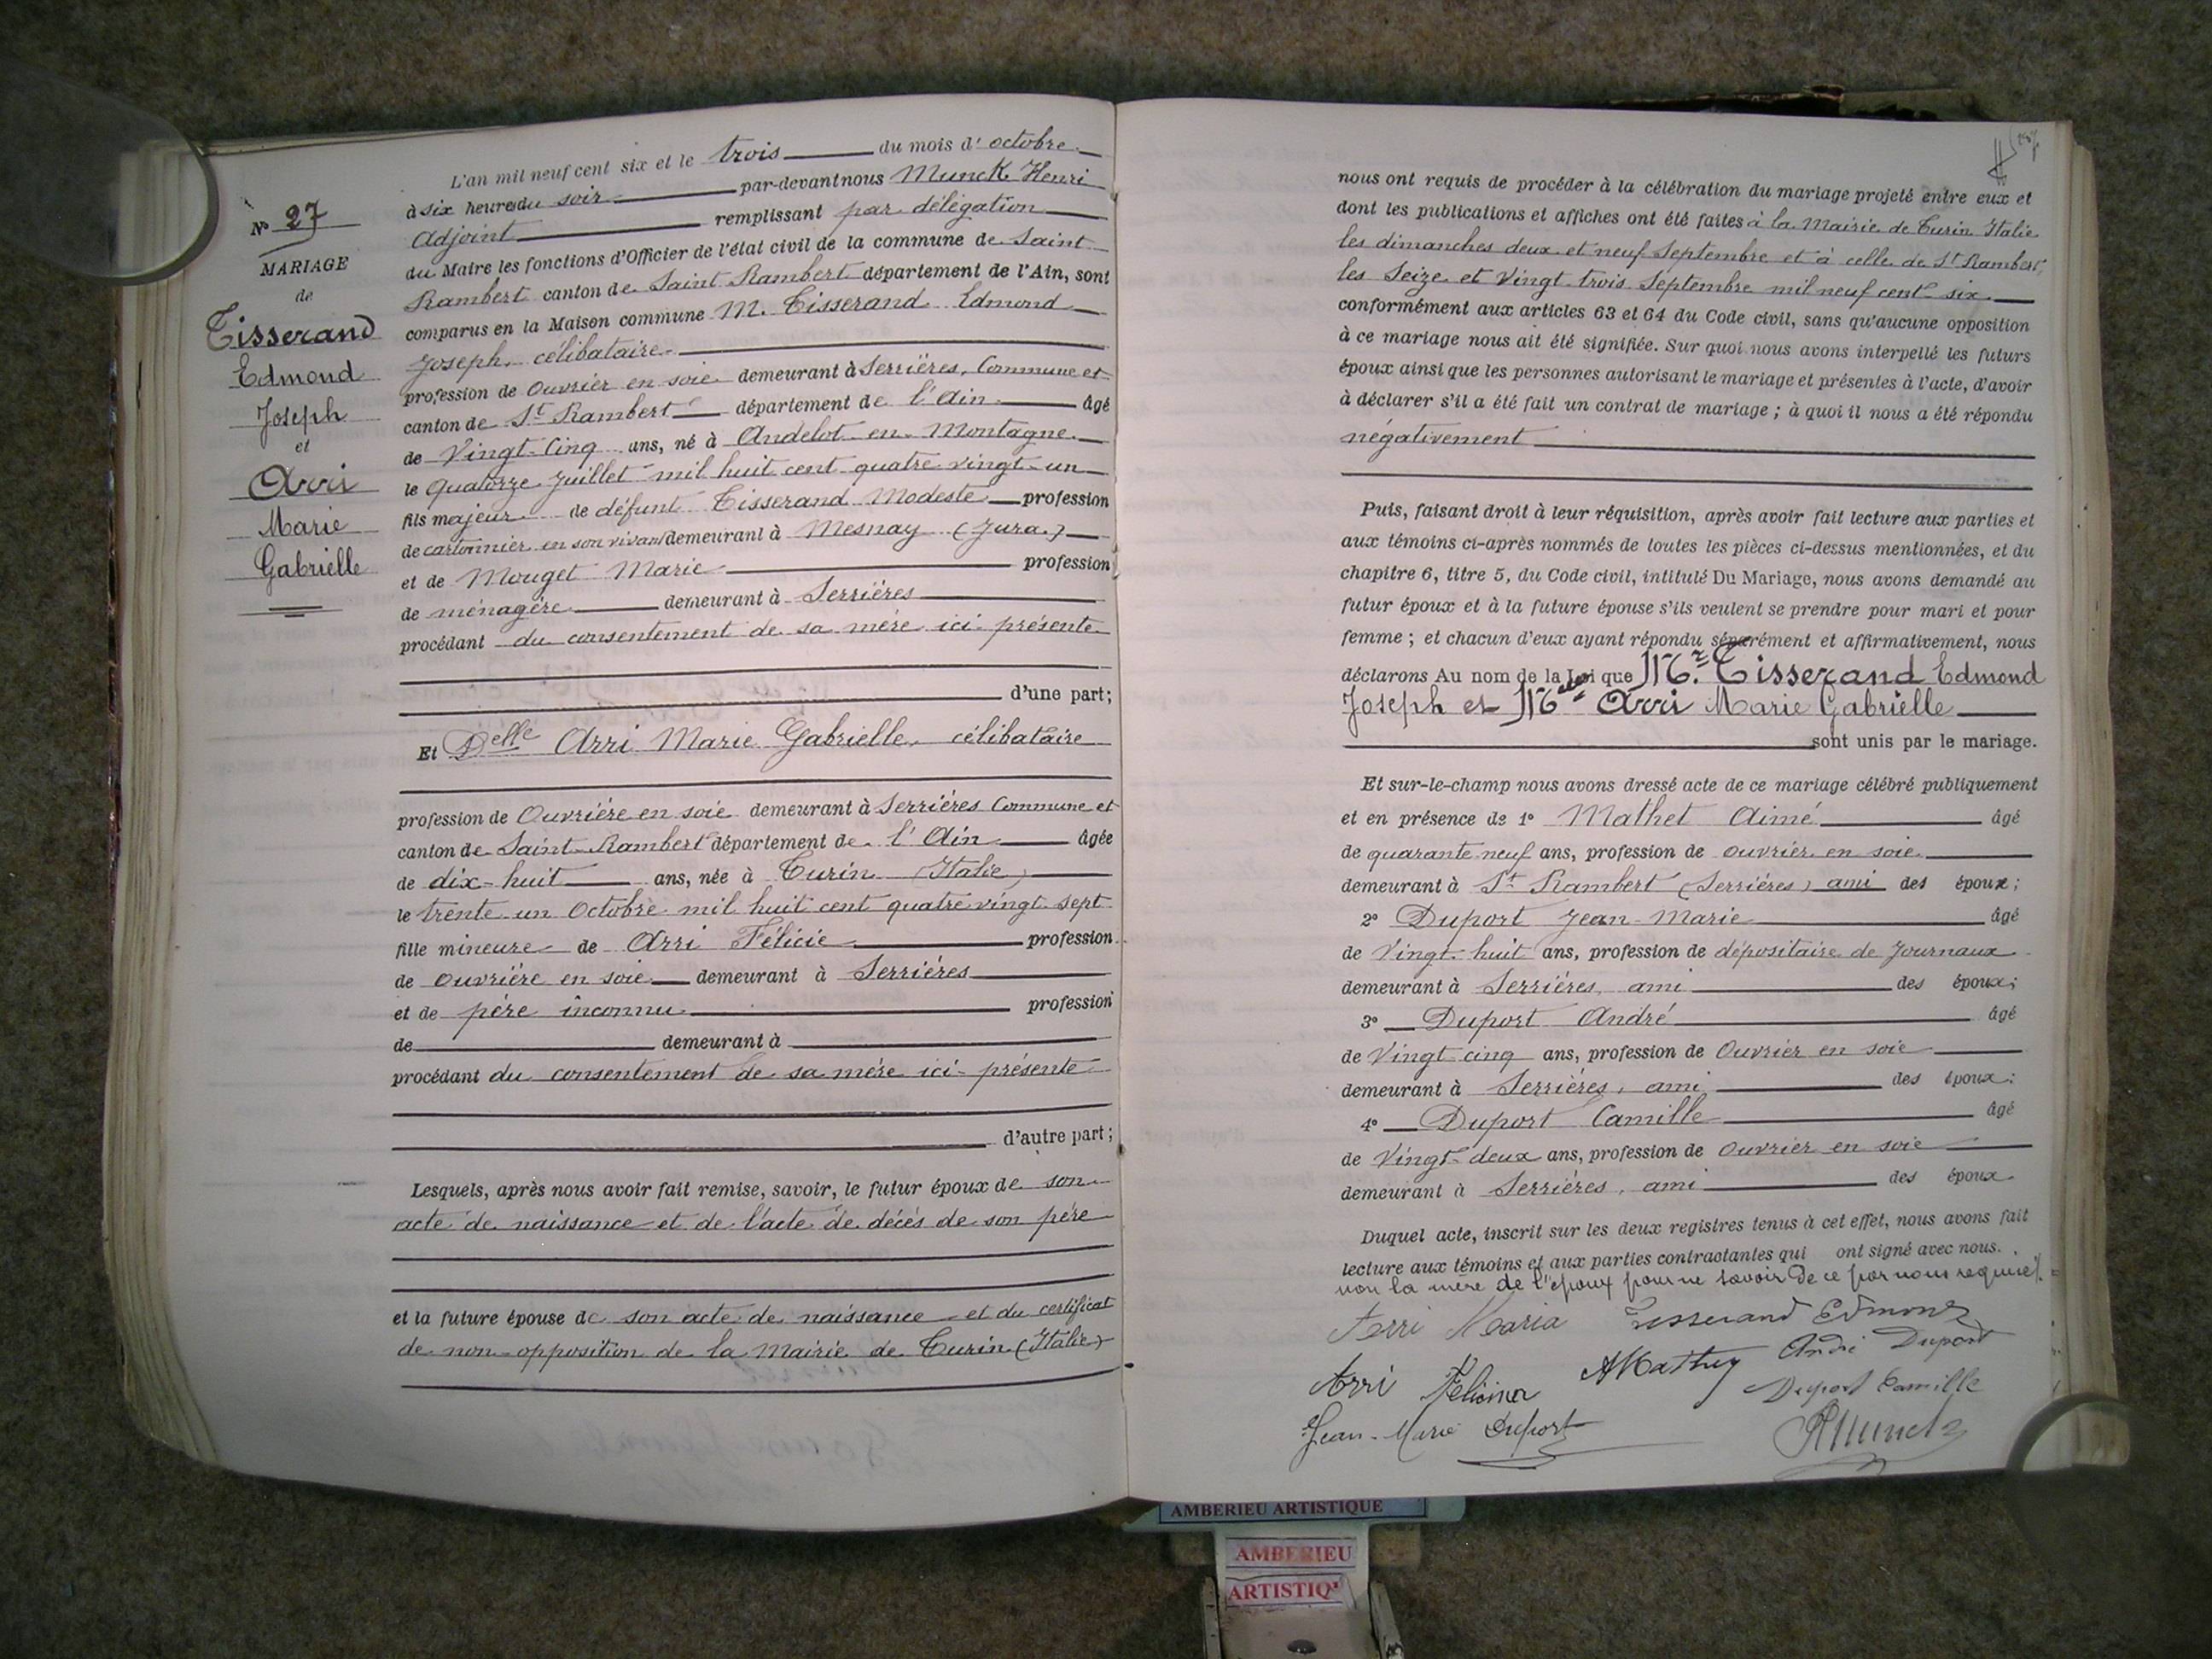 L'an mil neuf cent six et le trois du mois d'octobre
à six heures du soir par-devant nous Munck Henri
Adjoint remplissant par délégation
du Maire les fonctions d'Officier de l'état civil de la commune de Saint
Rambert canton de Saint Rambert département de l'Ain, sont
comparus en la Maison commune M. Tisserand Edmond
Joseph, célibataire
profession de Ouvrier en soie demeurant à Serrières, Commune et
canton de St Rambert département de l'Ain âgé
de Vingt-Cinq ans, né à Andelot-en-Montagne
le quatorze Juillet mil huit cent quatre vingt-un
fils majeur de défunt Tisserand Modeste profession
de cartonnier en son vivant demeurant à Mesnay (Jura.)
et de Mouget Marie profession
de ménagère demeurant à Serrières
procédant du consentement de sa mère ici-présente
d'une part;
Et Delle Arri Marie Gabrielle, célibataire
profession de Ouvrière en soie demeurant à Serrières Commune et
canton de Saint-Rambert département de l'Ain âgée
de dix-huit ans, née à Turin (Italie)
le trente un Octobre mil huit cent quatre vingt sept
fille mineure de Arri Félicie profession
de ouvrière en soie demeurant à Serrières
et de père inconnu profession
de demeurant à
procédant du consentement de sa mère ici-présente
d'autre part;
Lesquels, après nous avoir fait remise, savoir, le futur époux de son
acte de naissance et de l'acte de décès de son père
et la future épouse de son acte de naissance et du certificat
de non-opposition de la Mairie de Turin (Italie)
No 27
MARIAGE
de
Tisserand
Edmond
Joseph
et
Arri
Marie
Gabrielle
nous ont requis de procéder à la célébration du mariage projeté entre eux et
dont les publications et affiches ont été faites à la Mairie de Turin Italie
les dimanches deux et neuf Septembre et à celle de St Rambert,
les Seize et Vingt trois Septembre mil neuf cent six
conformément aux articles 63 et 64 du Code civil, sans qu'aucune opposition
à ce mariage nous ait été signifiée. Sur quoi nous avons interpellé les futurs
époux ainsi que les personnes autorisant le mariage et présentes à l'acte, d'avoir
à déclarer s'il a été fait un contrat de mariage; à quoi il nous a été répondu
négativement
Puis, faisant droit à leur réquisition, après avoir fait lecture aux parties et
aux témoins ci-après nommés de toutes les pièces ci-dessus mentionnées, et du
chapitre 6, titre 5, du Code civil, intitulé Du Mariage, nous avons demandé au
futur époux et à la future épouse s'ils veulent se prendre pour mari et pour
femme; et chacun d'eux ayant répondu séparément et affirmativement, nous
déclarons Au nom de la Loi que Mr. Tisserand Edmond
Joseph et Melle Arri Marie Gabrielle
sont unis par le mariage.
Et sur-le-champ nous avons dressé acte de ce mariage célébré publiquement
et en présence de 1° Mathet Aimé âgé
de quarante neuf ans, profession de ouvrier en soie
demeurant à St Rambert (Serrières) ami des époux;
2° Duport Jean-Marie âgé
de Vingt-huit ans, profession de dépositaire de Journaux
demeurant à Serrières, ami des époux;
3° Duport André âgé
de Vingt cinq ans, profession de Ouvrier en soie
demeurant à Serrières, ami des époux;
4° Duport Camille âgé
de Vingt-deux ans, profession de Ouvrier en soie
demeurant à Serrières, ami des époux
Duquel acte, inscrit sur les deux registres tenus à cet effet, nous avons fait
lecture aux témoins et aux parties contractantes qui ont signé avec nous.
non la mère de l'époux pour ne savoir de ce par nous requise.
Arri Maria Tisserand Edmond
Arri Felicina AMathey André Duport
Duport Camille
Jean-Marie Duport Munck
AMBERIEU ARTISTIQUE
AMBERIEU
ARTISTIQ